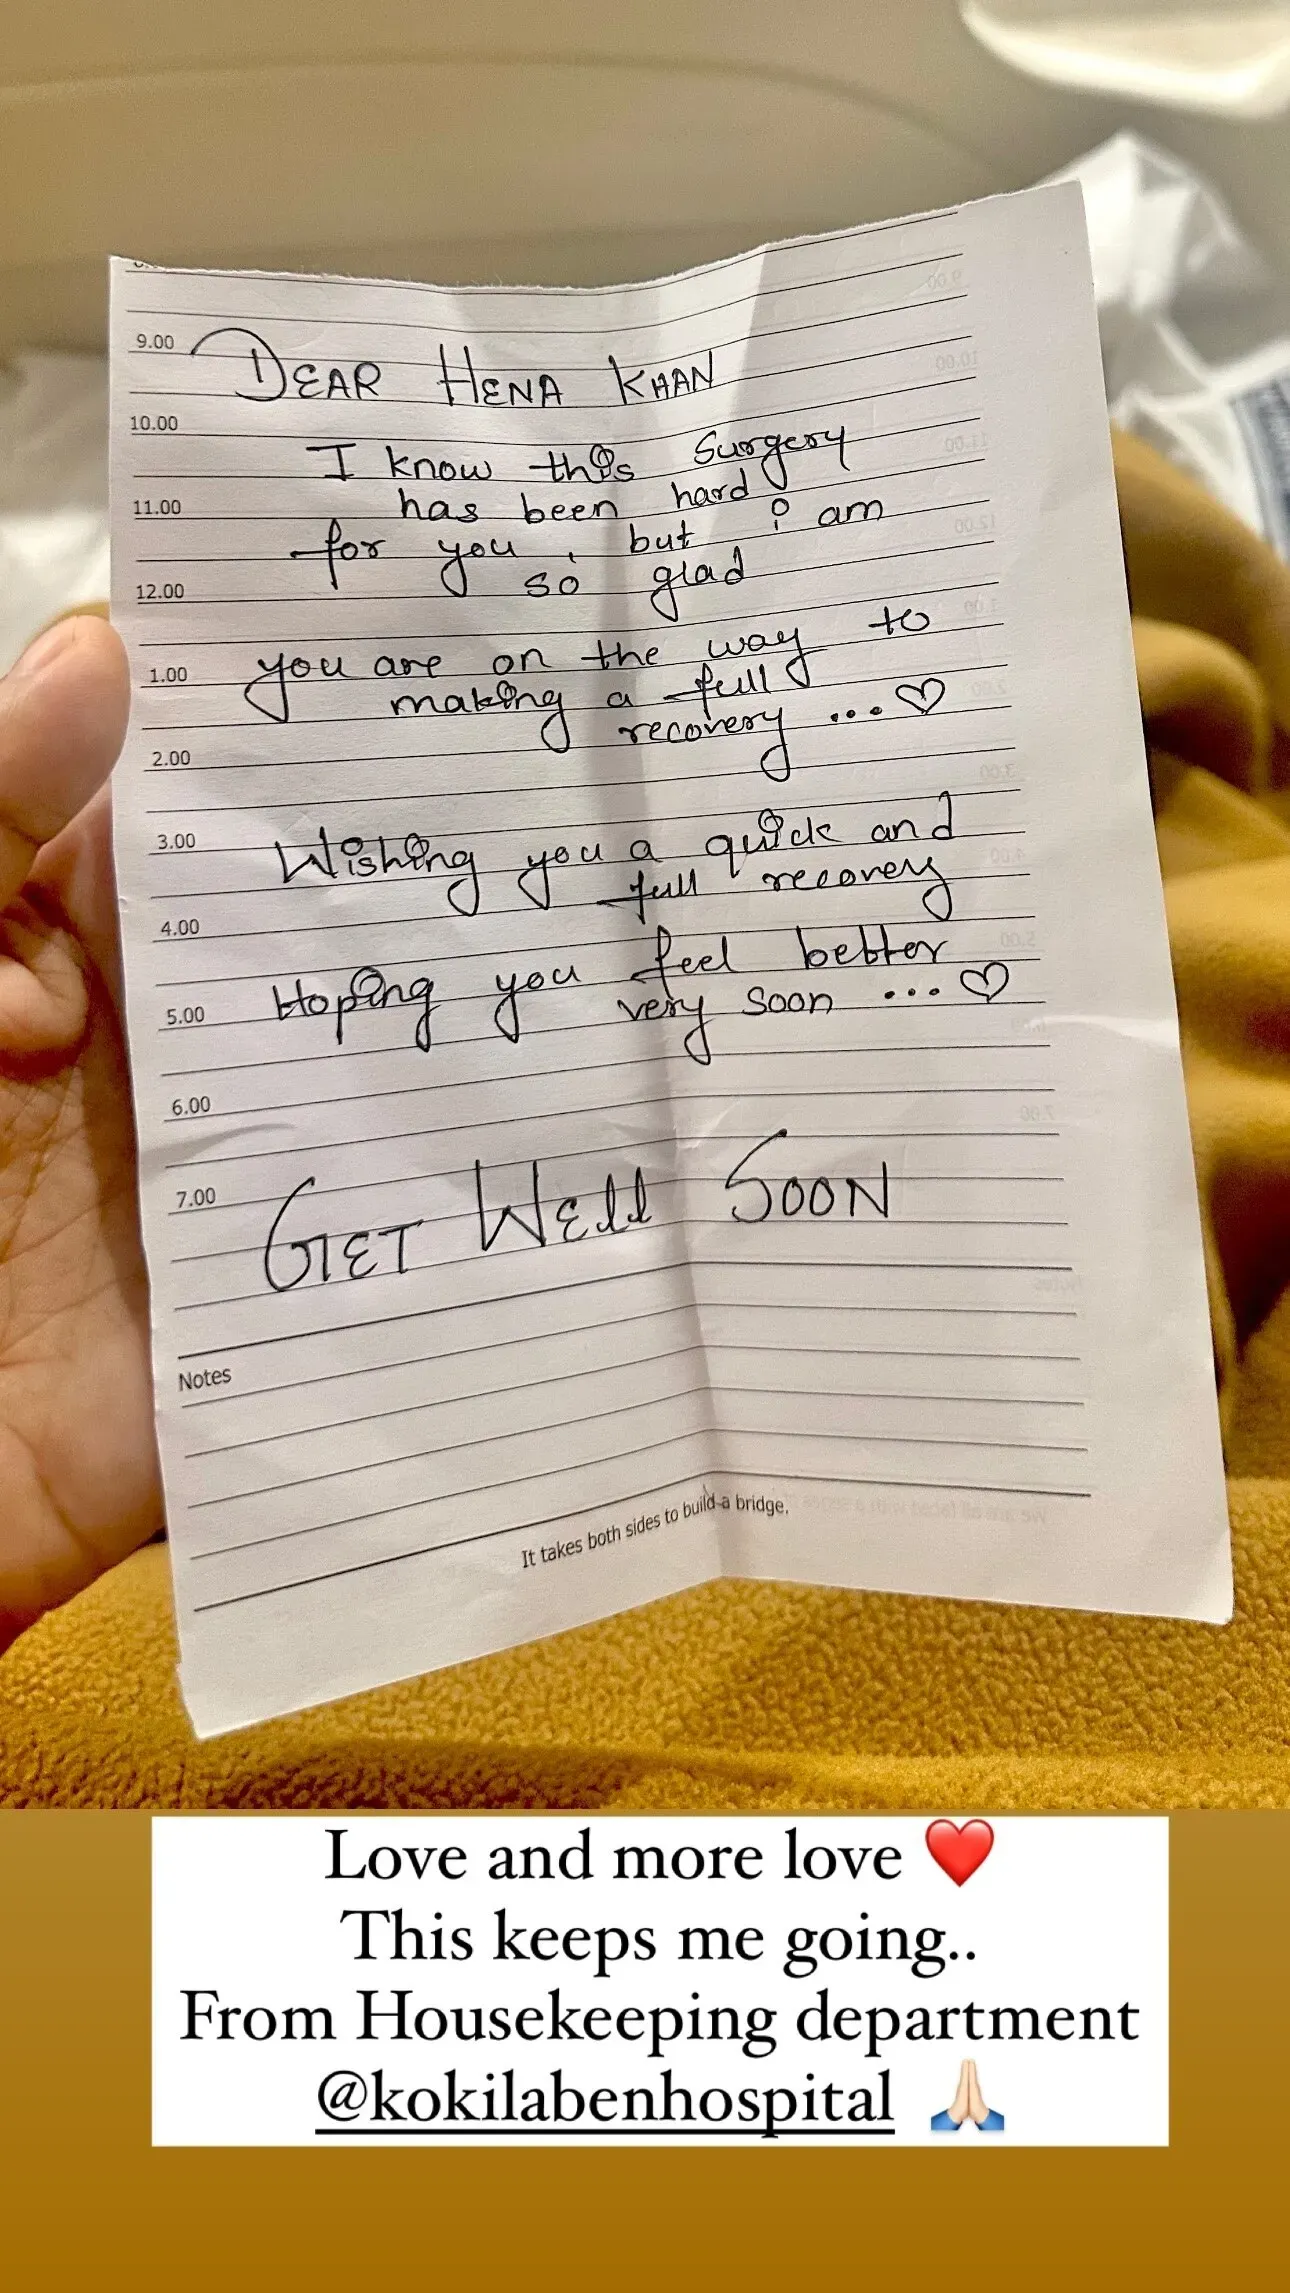 9.00
DEAR HENA KHAN
10.00
I know this surgery
has been hard
11.00
for you, but i am
so glad
12.00
you are on the way to
1.00
making a full
recovery ...♡
2.00
3.00
Wishing you a quick and
full recovery
4.00
Hoping you feel better
very soon ...♡
5.00
6.00
7.00
GET WEll SOON
Notes
It takes both sides to build a bridge.
Love and more love ❤️
This keeps me going..
From Housekeeping department
@kokilabenhospital 🙏🏻